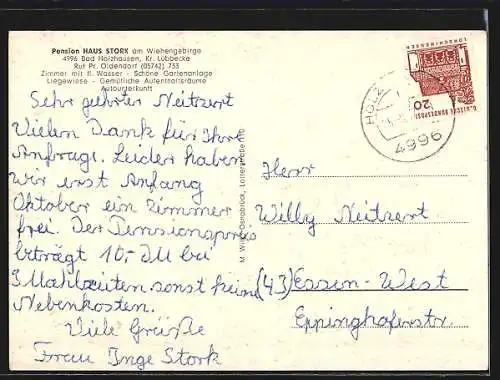 Pension HAUS STORK am Wiehengebirge
4996 Bad Holzhausen, Kr. Lübbecke
Ruf Pr. Oldendorf (05742) 753
Zimmer mit fl. Wasser - Schöne Gartenanlage
Liegewiese - Gemütliche Aufenthaltsräume
Autounterkunft
Sehr geehrter Neitzert
Vielen Dank für Ihre
Anfrage. Leider haben
wir erst Anfang
Oktober ein Zimmer
frei. Der Pensionspreis
beträgt 10,- DM bei
3 Mahlzeiten sonst keine
Nebenkosten.
Viele Grüße
Frau Inge Stork
Osnabrück,
LORSCH/HESSEN
DEUTSCHE BUNDESPOST
20
HOLZ
4996
Herr
Willy Neitzert
(43) Essen-West
Eppinghoferstr.